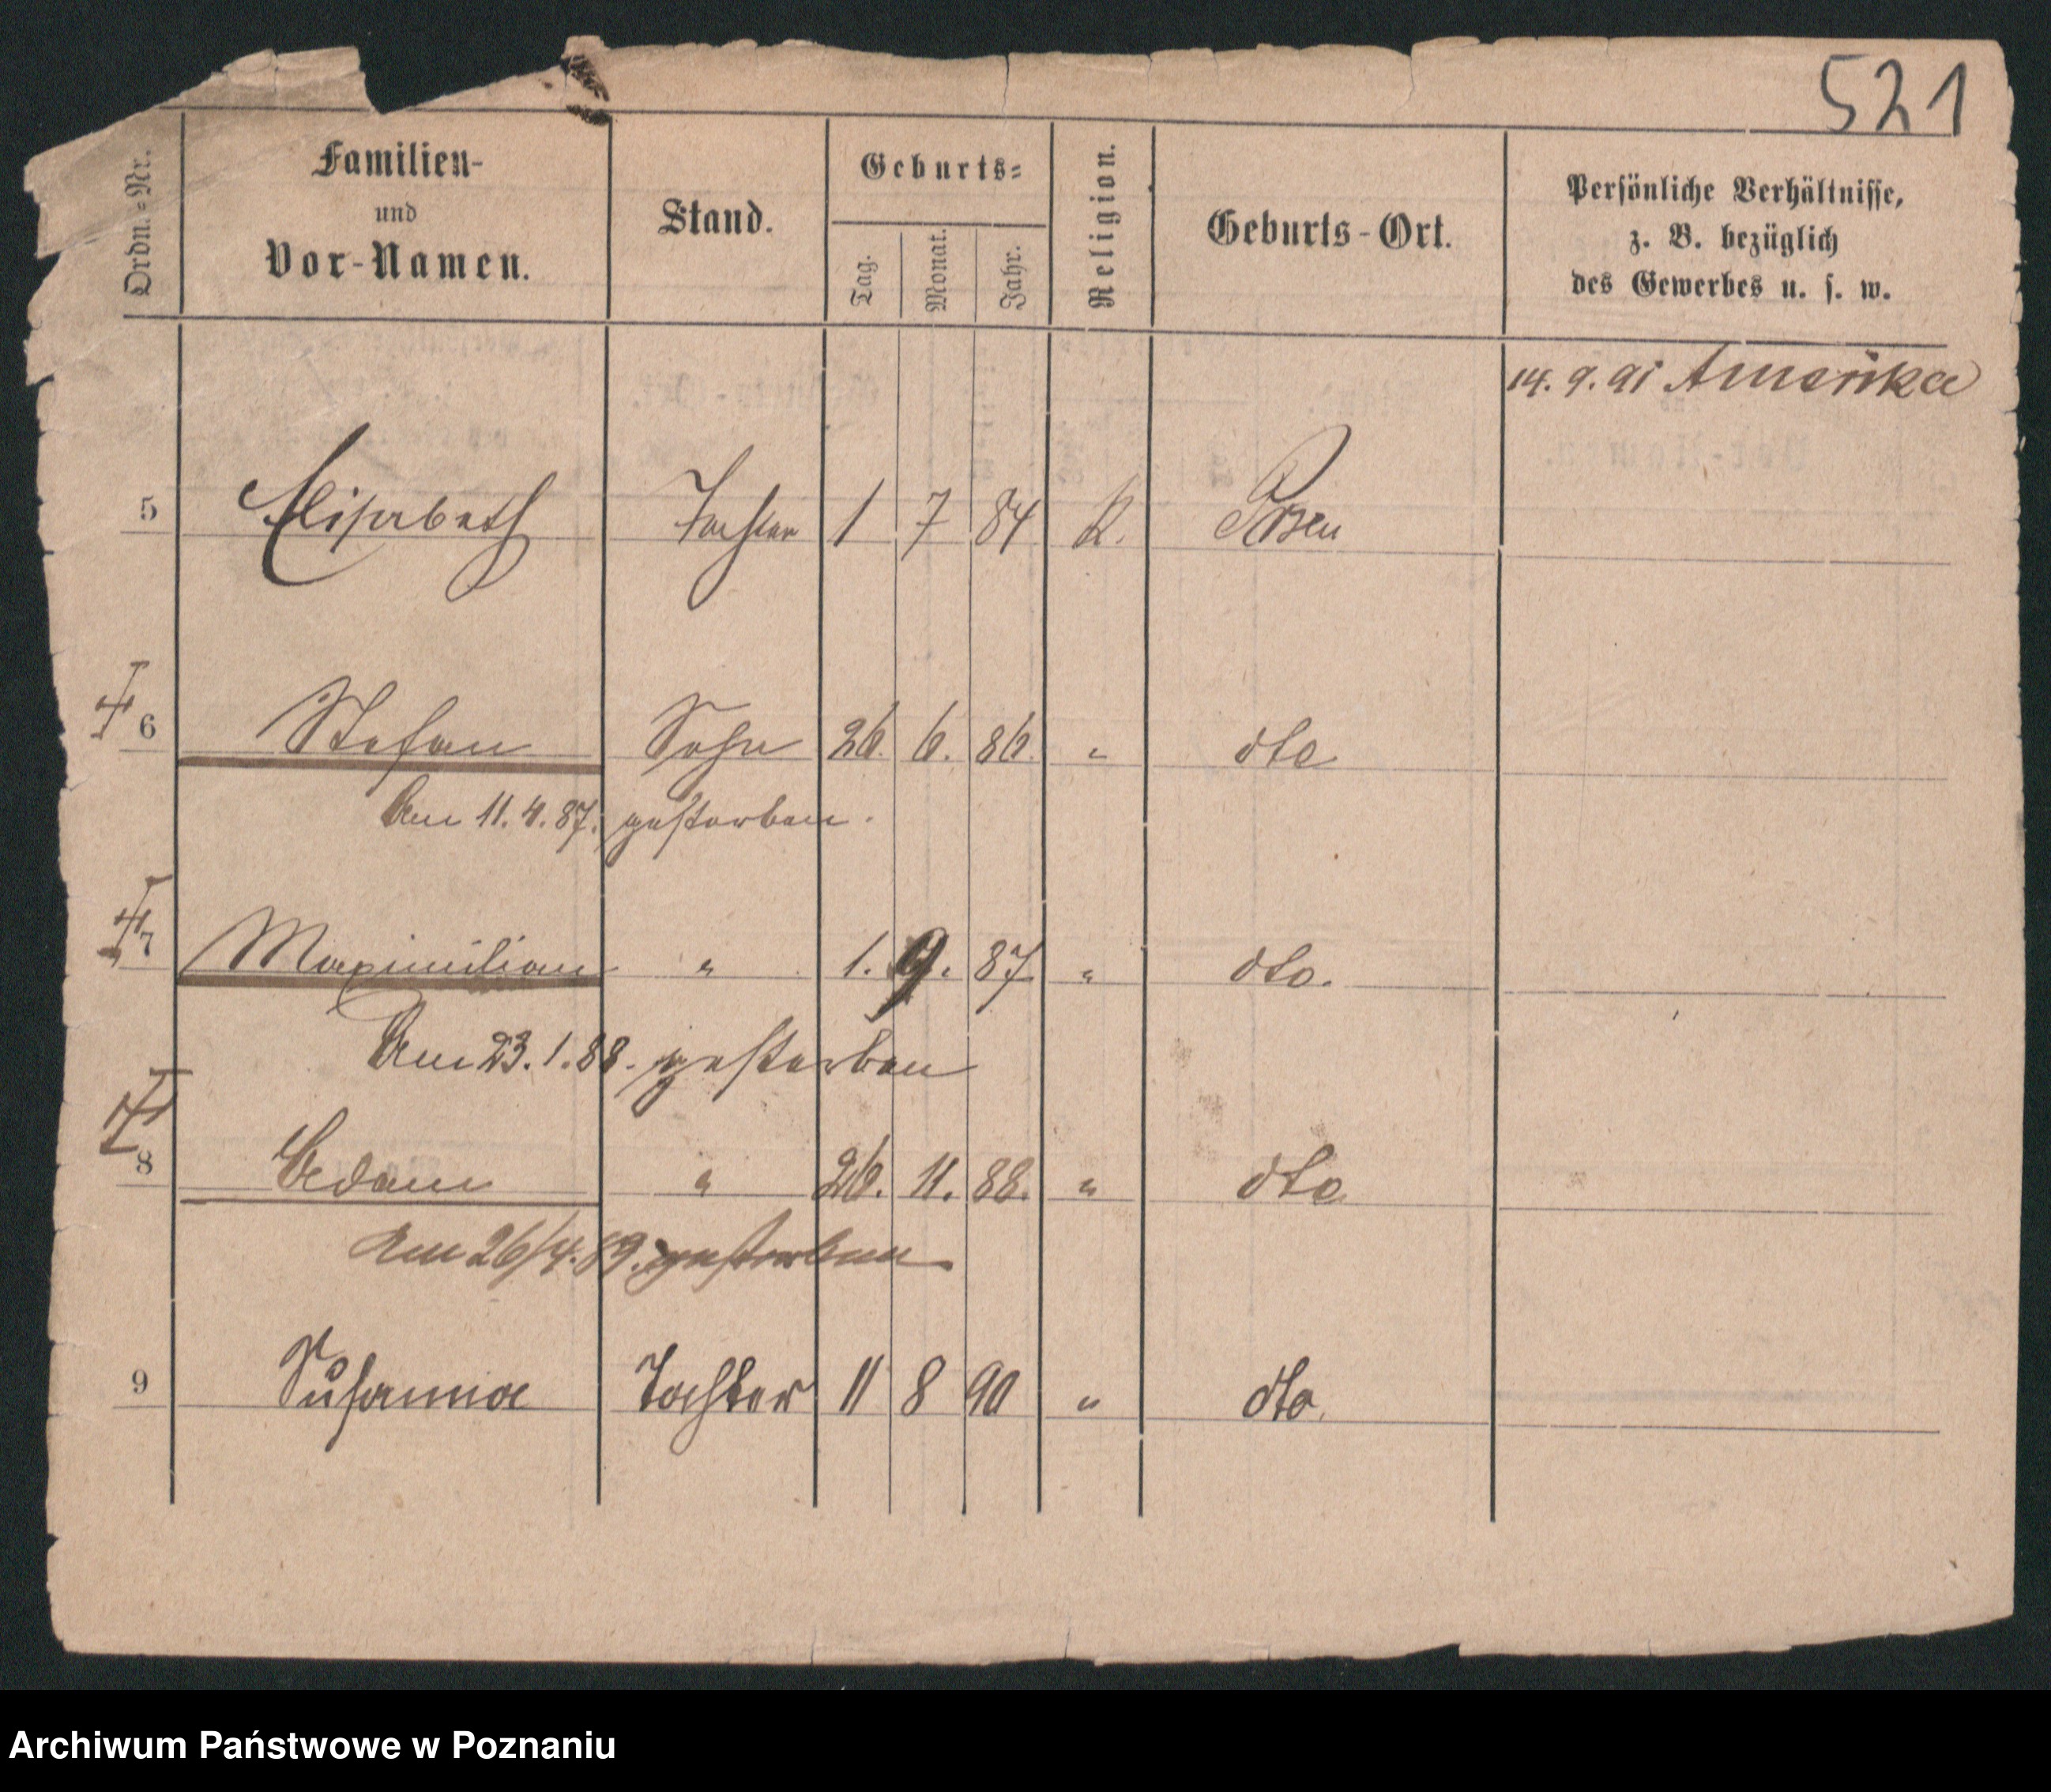 521
Ordn.=Nr. Familien- und Vor-Namen. Stand. Geburts= Tag. Monat. Jahr. Religion. Geburts-Ort. Persönliche Verhältnisse, z. B. bezüglich des Gewerbes u. s. w.
14. 9. 91 Amerika
5 Elisabeth Tochter 1 7 84 K. Posen
6 Stefan Sohn 26. 6. 86. " dto
Am 11. 4. 87. gestorben.
7 Maximilian " 1. 9. 87 " dto.
Am 23. 1. 88. gestorben
8 Adam " 26. 11. 88. " dto
Am 26/4. 89. gestorben
9 Susanna Tochter 11 8 90 " dto.
Archiwum Państwowe w Poznaniu